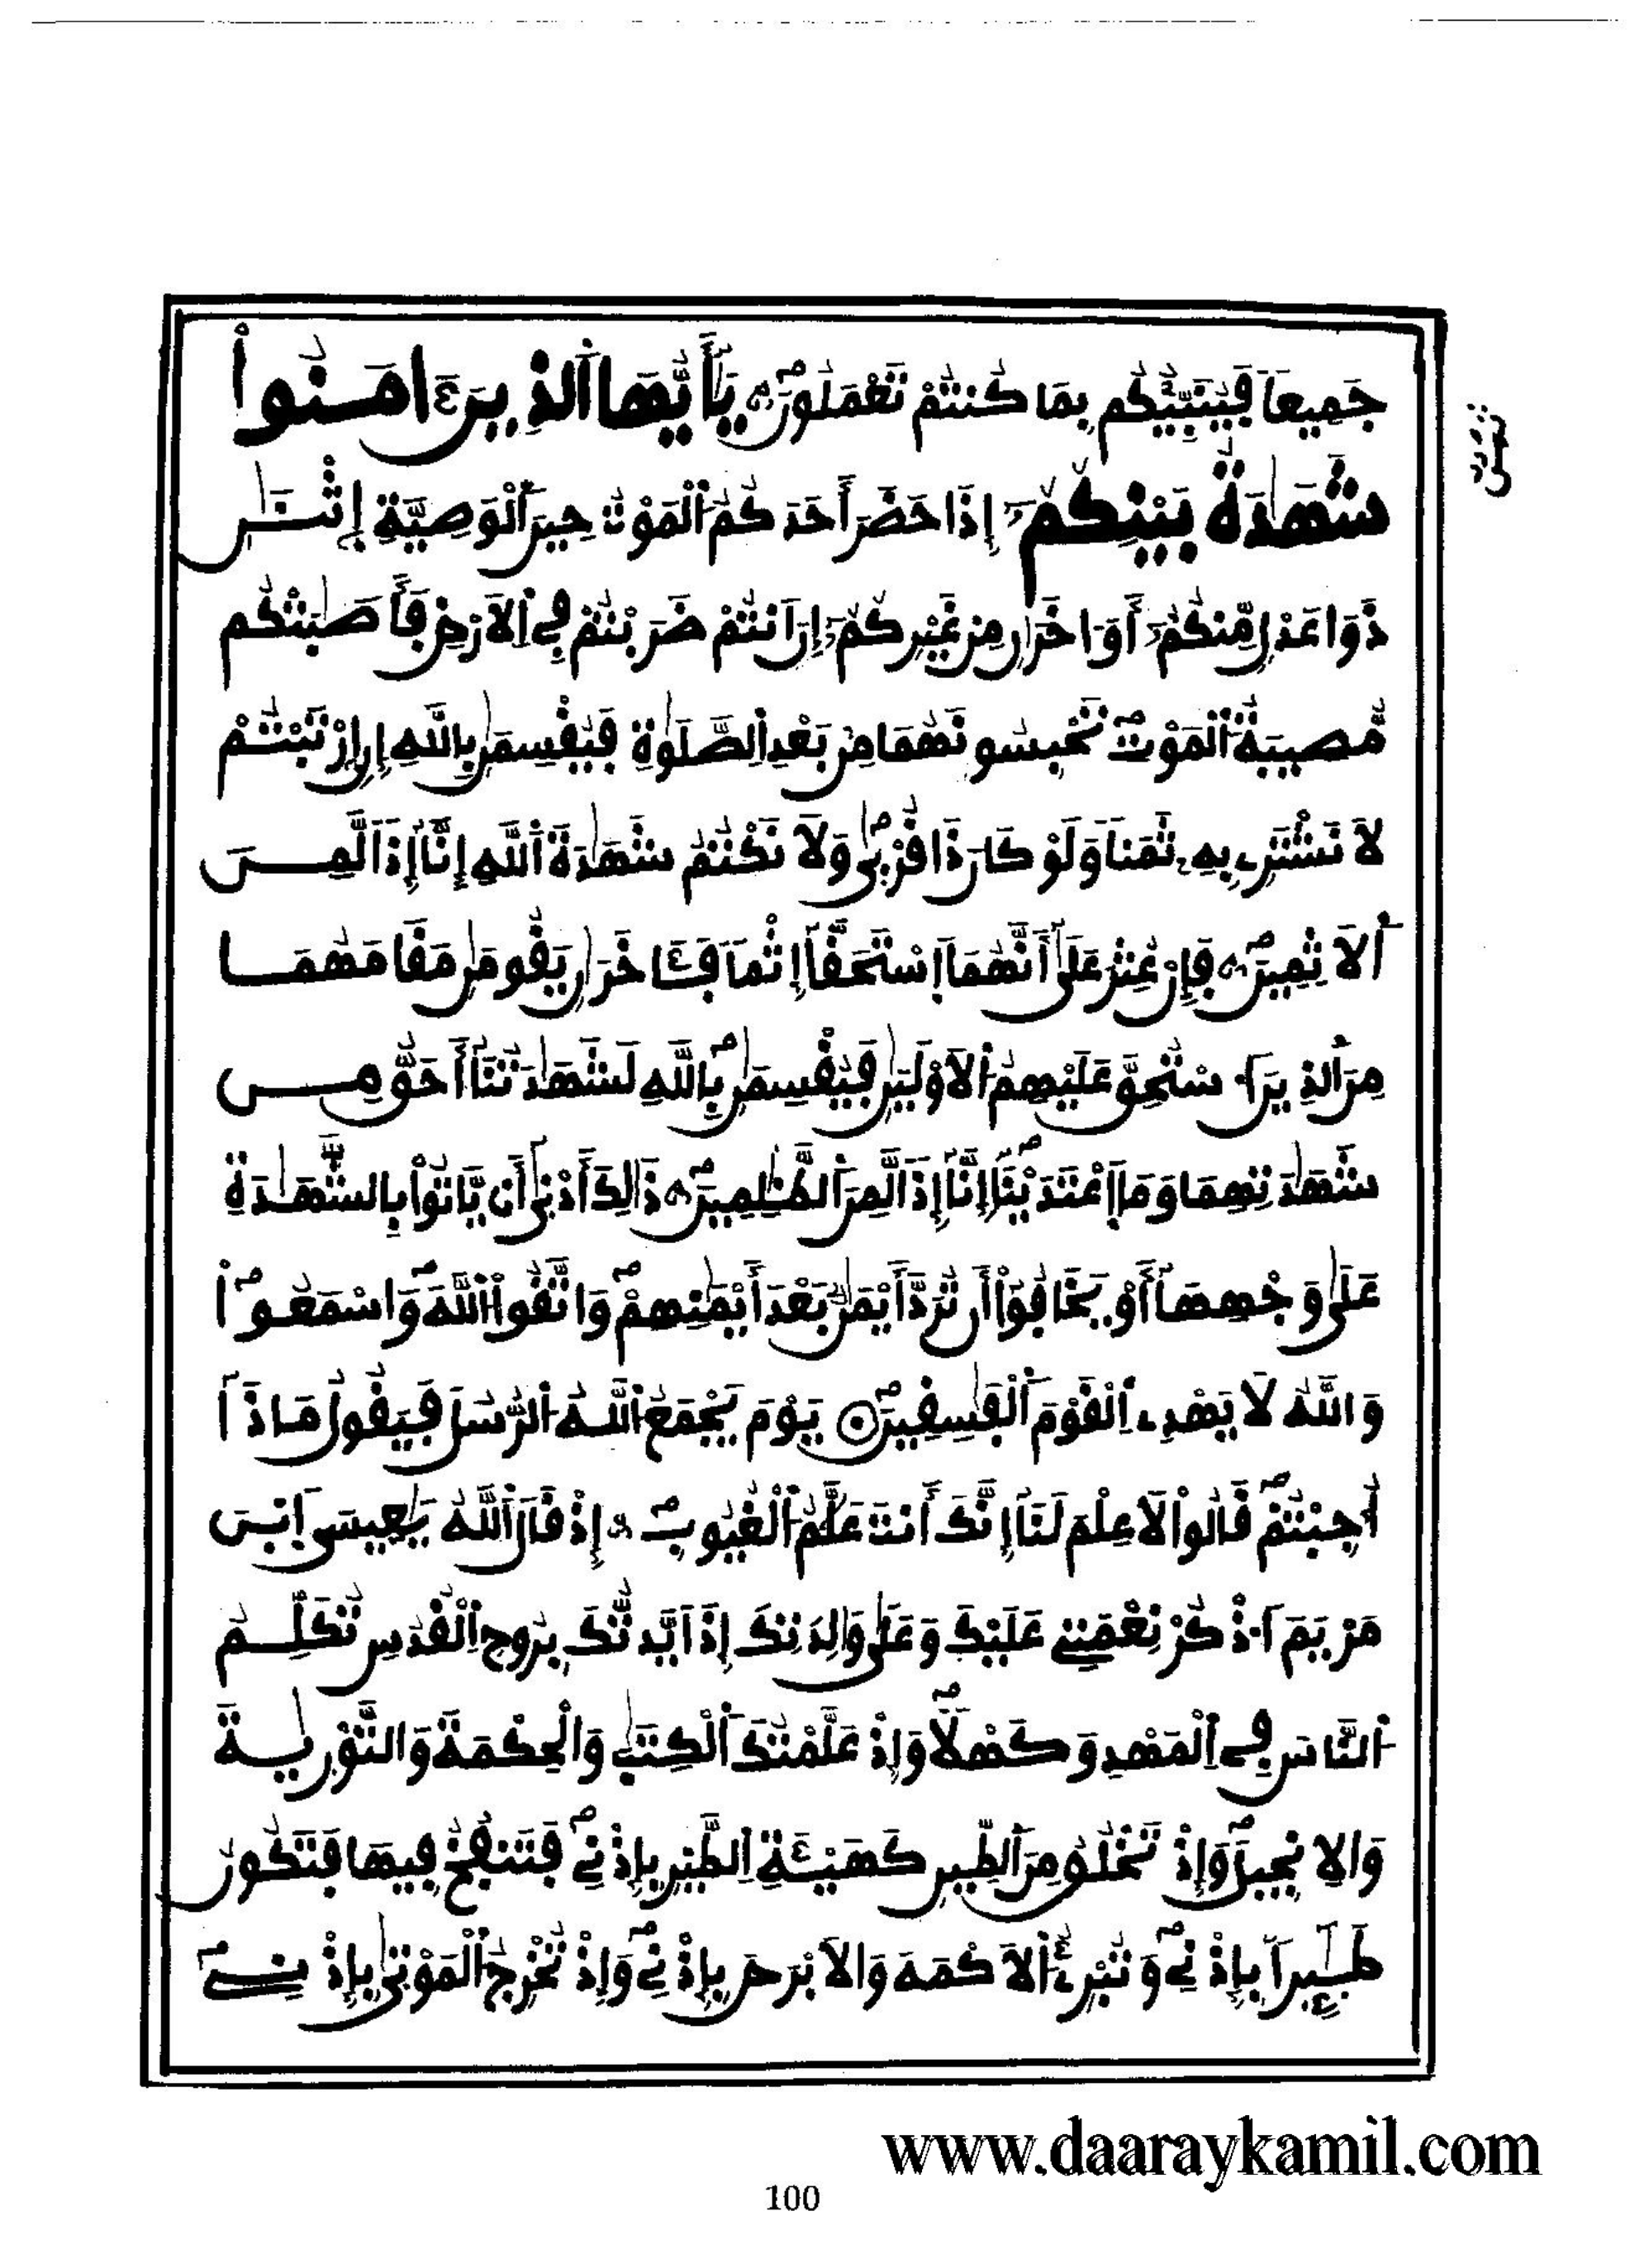 جَمِيعاً فَيُنَبِّئُكُم بِمَا كُنتُمْ تَعْمَلُونَ يَٰأَيُّهَا ٱلذِينَ ءَامَنُواْ
ثمن
شَهَٰدَةُ بَيْنِكُمُۥٓ إِذَا حَضَرَ أَحَدَكُمُ ٱلْمَوْتُ حِينَ ٱلْوَصِيَّةِ إِثْنَٰنِ
ذَوَا عَدْلٍ مِّنكُمُۥٓ أَوَ اخَرَٰنِ مِنْ غَيْرِكُمُۥٓ إِنَ اَنتُمْ ضَرَبْتُمْ فِے اِلَارْضِ فَأَصَٰبَتْكُم
مُّصِيبَةُ ٱلْمَوْتِ تَحْبِسُونَهُمَا مِنۢ بَعْدِ اِلصَّلَوٰةِ فَيُقْسِمَٰنِ بِاللَّهِ إِنِ اِرْتَبْتُمْ
لَا نَشْتَرِے بِهِۦ ثَمَناً وَلَوْ كَانَ ذَا قُرْبَىٰ وَلَا نَكْتُمُ شَهَٰدَةَ ٱللَّهِ إِنَّآ إِذاً لَّمِنَ
ٱلَاثِمِينَ فَإِنْ عُثِرَ عَلَىٰٓ أَنَّهُمَا اَسْتَحَقَّآ إِثْماً فَـَٔاخَرَٰنِ يَقُومَٰنِ مَقَامَهُمَا
مِنَ ٱلذِينَ اَسْتُحِقَّ عَلَيْهِمُ ٱلَاوْلَيَٰنِ فَيُقْسِمَٰنِ بِاللَّهِ لَشَهَٰدَتُنَآ أَحَقُّ مِن
شَهَٰدَتِهِمَا وَمَا اَعْتَدَيْنَآ إِنَّآ إِذاً لَّمِنَ ٱلظَّٰلِمِينَ ذَٰلِكَ أَدْنَىٰٓ أَنْ يَّاتُواْ بِالشَّهَٰدَةِ
عَلَىٰ وَجْهِهَآ أَوْ يَخَافُوٓاْ أَن تُرَدَّ أَيْمَٰنٌۢ بَعْدَ أَيْمَٰنِهِمْ وَاتَّقُواْ ٱللَّهَ وَاسْمَعُواْ
وَاللَّهُ لَا يَهْدِے اِلْقَوْمَ ٱلْفَٰسِقِينَ يَوْمَ يَجْمَعُ ٱللَّهُ ٱلرُّسُلَ فَيَقُولُ مَاذَآ
أُجِبْتُمْ قَالُواْ لَا عِلْمَ لَنَآ إِنَّكَ أَنتَ عَلَّٰمُ ٱلْغُيُوبِ إِذْ قَالَ ٱللَّهُ يَٰعِيسَى اَبْنَ
مَرْيَمَ اَذْكُرْ نِعْمَتِے عَلَيْكَ وَعَلَىٰ وَٰلِدَتِكَ إِذَ اَيَّدتُّكَ بِرُوحِ اِلْقُدُسِ تُكَلِّمُ
ٱلنَّاسَ فِے اِلْمَهْدِ وَكَهْلاً وَإِذْ عَلَّمْتُكَ ٱلْكِتَٰبَ وَالْحِكْمَةَ وَالتَّوْرَيٰةَ
وَالِانجِيلَ وَإِذْ تَخْلُقُ مِنَ ٱلطِّينِ كَهَيْـَٔةِ اِلطَّيْرِ بِإِذْنِے فَتَنفُخُ فِيهَا فَتَكُونُ
طَٰٓئِراً بِإِذْنِے وَتُبْرِۓُ اُلَاكْمَهَ وَالَابْرَصَ بِإِذْنِے وَإِذْ تُخْرِجُ ٱلْمَوْتَىٰ بِإِذْنِے
www.daaraykamil.com
100